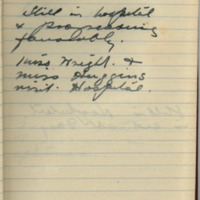 Still in hospital
& progressing
favorably.
Miss Wright &
Miss Duggins
visit. Hospital.